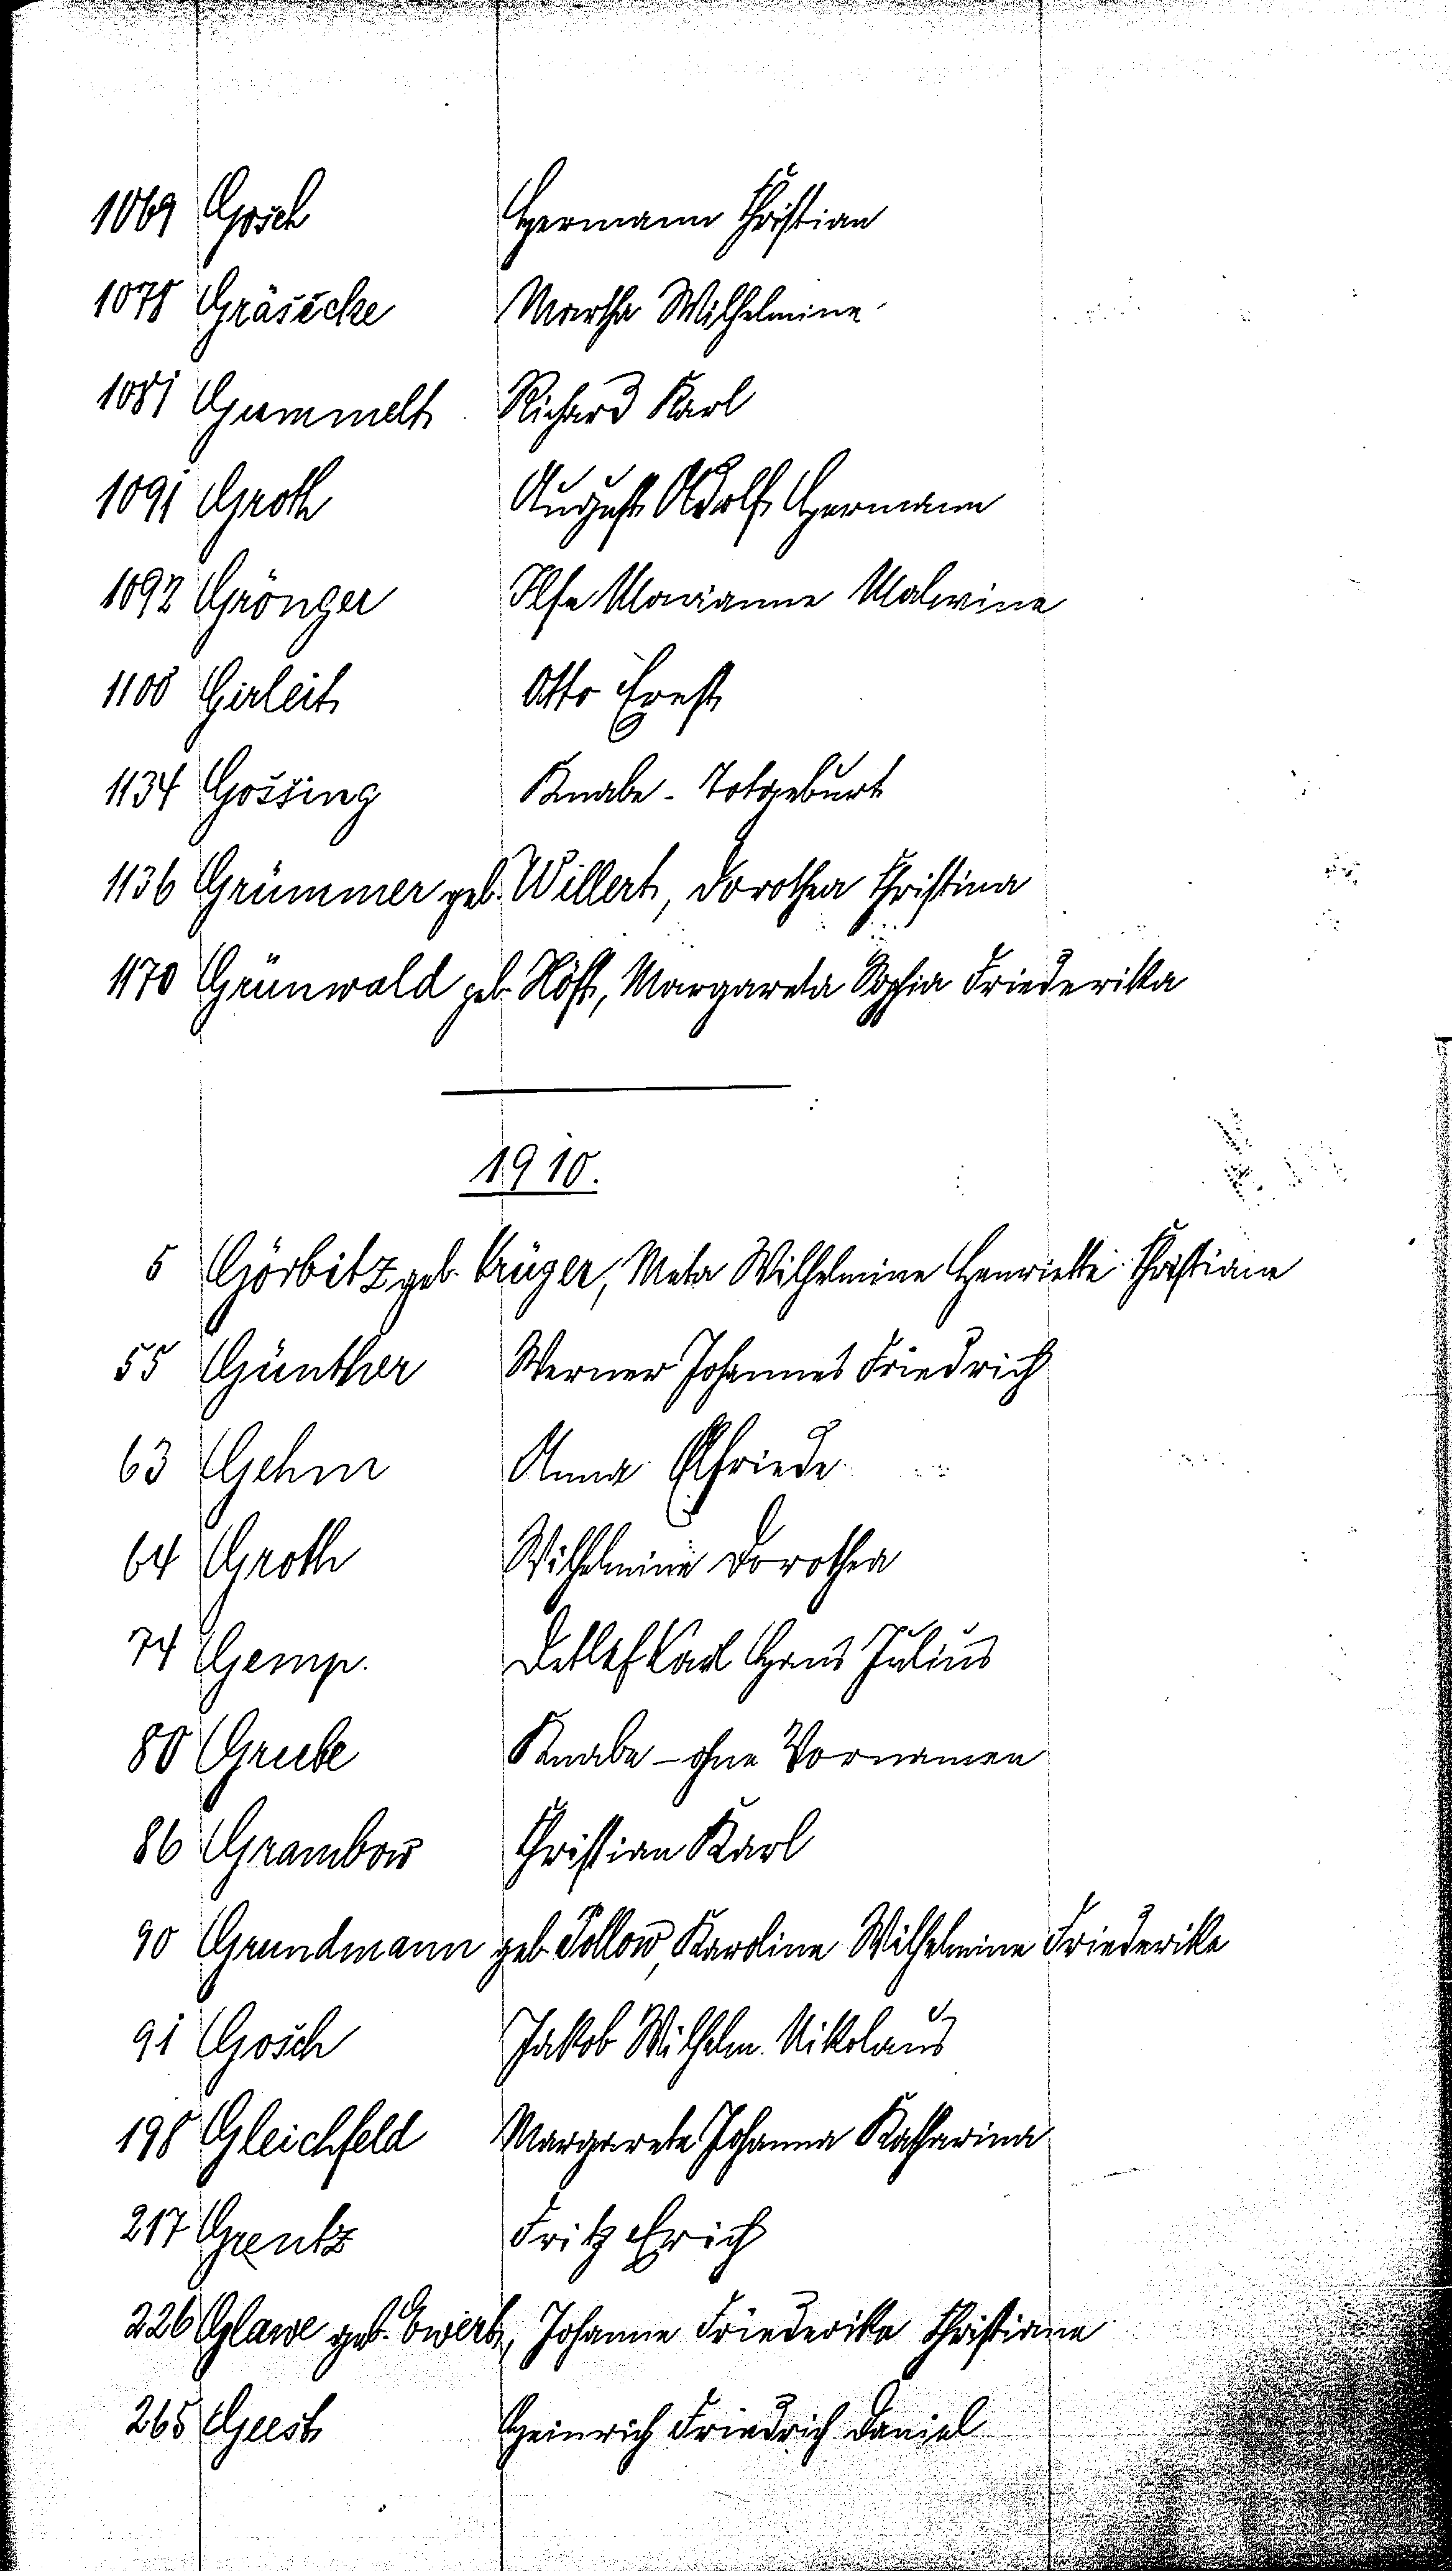 1069 Gosch Hermann Christian
1078 Gräsecke Martha Wilhelmine
1081 Gummelt Richard Karl
1091 Groth August Adolf Hermann
1092 Grönger Ilse Marianne Malwine
1108 Girleit Otto Ernst
1134 Gossing Knabe - Totgeburt
1136 Grümmer geb. Willert, Dorothea Christina
1170 Grünwald geb. Höft, Margareta Sophia Friederika
1910.
5 Görbitz geb. Krüger, Meta Wilhelmine Henriette Christiane
55 Günther Werner Johannes Friedrich
63 Gehm Anna Elfriede
64 Groth Wilhelmine Dorothea
74 Gemp. Detlef Carl Hans Julius
80 Grube Knabe - ohne Vornamen
86 Grambow Christian Karl
90 Grundmann geb. Pollow, Karoline Wilhelmine Friederike
91 Gosch Jakob Wilhelm Nikolaus
198 Gleichfeld Margareta Johanna Katharina
217 Grentz Fritz Erich
226 Glawe geb. Ewert, Johanne Friederika Christiane
265 Geest Heinrich Friedrich Daniel